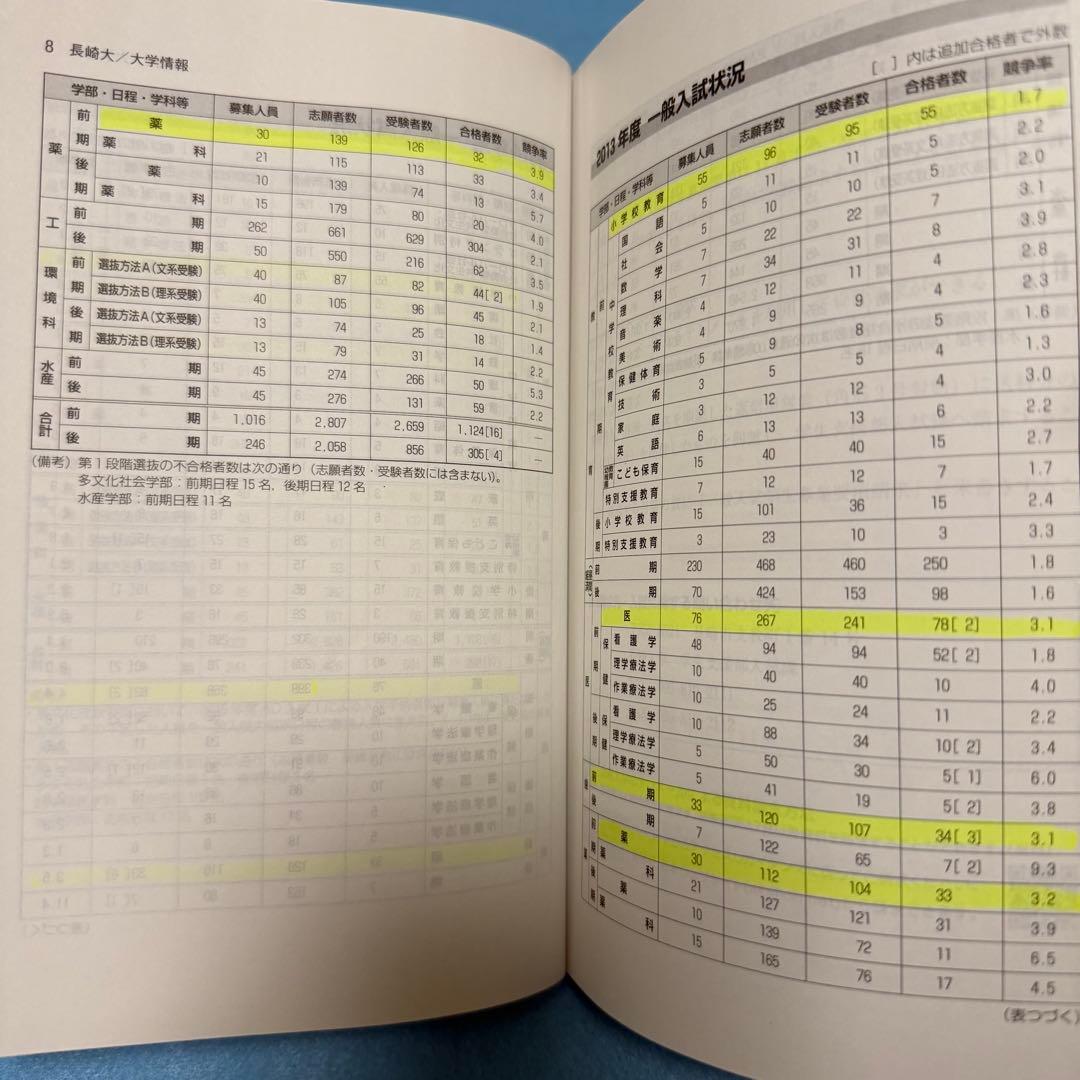 8 長崎大／大学情報
学部・日程・学科等 募集人員 志願者数 受験者数 合格者数 競争率
薬 前期 薬 30 139 126 32 3.9
薬科 21 115 113 33 3.4
後期 薬 10 139 74 13 5.7
薬科 15 179 80 20 4.0
工 前期 262 661 629 304 2.1
後期 50 550 216 62 3.5
環境科 前期 選抜方法A(文系受験) 40 87 82 44[2] 1.9
選抜方法B(理系受験) 40 105 96 45 2.1
後期 選抜方法A(文系受験) 13 74 25 18 1.4
選抜方法B(理系受験) 13 79 31 14 2.2
水産 前期 45 274 266 50 5.3
後期 45 276 131 59 2.2
合計 前期 1,016 2,807 2,659 1,124[16] —
後期 246 2,058 856 305[4] —
(備考) 第1段階選抜の不合格者数は次の通り（志願者数・受験者数には含まない）。
多文化社会学部：前期日程15名，後期日程12名
水産学部：前期日程11名
2013年度 一般入試状況
[ ]内は追加合格者で外数
学部・日程・学科等 募集人員 志願者数 受験者数 合格者数 競争率
教育 前期 小学校教育 55 96 95 55 1.7
中学校教育 国語 5 11 11 5 2.2
社会 5 10 10 5 2.0
数学 7 22 22 7 3.1
理科 7 34 31 8 3.9
音楽 4 12 11 4 2.8
美術 4 9 9 4 2.3
保健体育 5 9 8 5 1.6
技術 3 5 5 4 1.3
家庭 3 12 12 4 3.0
英語 6 13 13 6 2.2
こども保育 15 40 40 15 2.7
特別支援教育 7 12 12 7 1.7
後期 小学校教育 15 101 36 15 2.4
特別支援教育 3 23 10 3 3.3
前期 230 468 460 250 1.8
後期 70 424 153 98 1.6
医 前期 医 76 267 241 78[2] 3.1
保健 看護学 48 94 94 52[2] 1.8
理学療法学 10 40 40 10 4.0
作業療法学 10 25 24 11 2.2
後期 保健 看護学 10 88 34 10[2] 3.4
理学療法学 5 50 30 5[1] 6.0
作業療法学 5 41 19 5[2] 3.8
歯 前期 33 120 107 34[3] 3.1
後期 7 122 65 7[2] 9.3
薬 前期 薬 30 112 104 33 3.2
薬科 21 127 121 31 3.9
後期 薬 10 139 72 11 6.5
薬科 15 165 76 17 4.5
(表つづく)